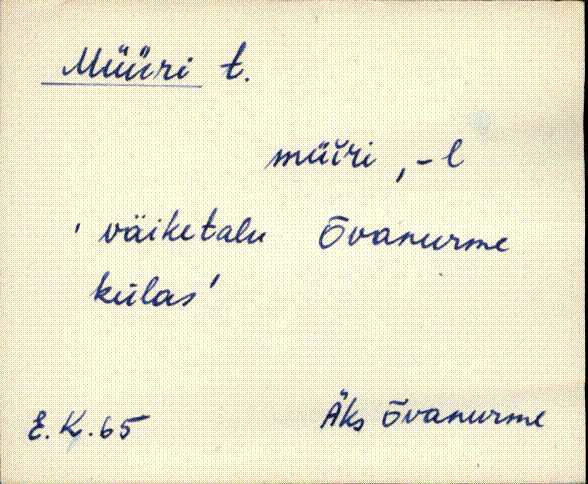 Müüri t.
müìri, -l
' väiketalu Õvanurme
külas'
E.K.65 Äks Õvanurme